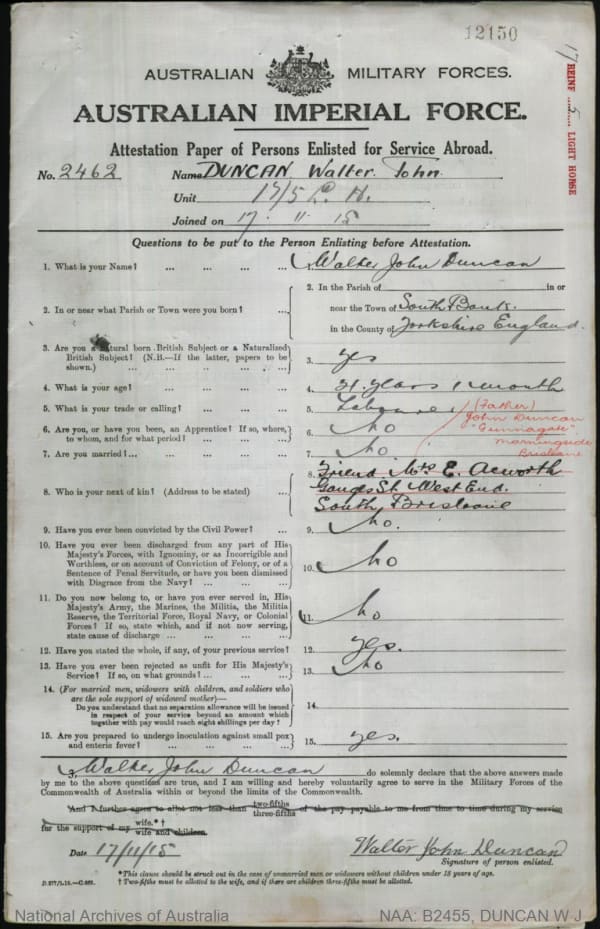 12150
17
REINF 5 LIGHT HORSE
AUSTRALIAN MILITARY FORCES.
AUSTRALIAN IMPERIAL FORCE.
Attestation Paper of Persons Enlisted for Service Abroad.
No. 2462 Name DUNCAN Walter John
Unit 17/5 L. H.
Joined on 17. 11 15
Questions to be put to the Person Enlisting before Attestation.
1. What is your Name? ... ... ... ... 1. Walter John Duncan
2. In or near what Parish or Town were you born? ... 2. In the Parish of in or
near the Town of South Bank
in the County of Yorkshire England.
3. Are you a natural born British Subject or a Naturalized
British Subject? (N.B.—If the latter, papers to be
shown.) ... ... ... ... 3. yes
4. What is your age? ... ... ... ... 4. 21 years 1 month
5. What is your trade or calling? ... ... ... 5. Labourer
(Father)
John Duncan
"Gunnagate"
Morningside
Brisbane
6. Are you, or have you been, an Apprentice? If so, where,
to whom, and for what period? ... ... ... 6. No
7. Are you married? ... ... ... ... 7. No
8. Who is your next of kin? (Address to be stated) ... 8. Friend Mrs E. Acworth
St. West End.
South Brisbane
9. Have you ever been convicted by the Civil Power? ... 9. No.
10. Have you ever been discharged from any part of His
Majesty's Forces, with Ignominy, or as Incorrigible and
Worthless, or on account of Conviction of Felony, or of a
Sentence of Penal Servitude, or have you been dismissed
with Disgrace from the Navy? ... ... ... 10. No
11. Do you now belong to, or have you ever served in, His
Majesty's Army, the Marines, the Militia, the Militia
Reserve, the Territorial Force, Royal Navy, or Colonial
Forces? If so, state which, and if not now serving,
state cause of discharge ... ... ... ... 11. No
12. Have you stated the whole, if any, of your previous service? 12. yes.
13. Have you ever been rejected as unfit for His Majesty's
Service? If so, on what grounds? ... ... ... 13. No
14. (For married men, widowers with children, and soldiers who
are the sole support of widowed mother)—
Do you understand that no separation allowance will be issued
in respect of your service beyond an amount which
together with pay would reach eight shillings per day? 14.
15. Are you prepared to undergo inoculation against small pox
and enteric fever? ... ... ... ... 15. yes.
I, Walter John Duncan do solemnly declare that the above answers made
by me to the above questions are true, and I am willing and hereby voluntarily agree to serve in the Military Forces of the
Commonwealth of Australia within or beyond the limits of the Commonwealth.
*And I further agree to allot not less than two-fifths three-fifths of the pay payable to me from time to time during my service
for the support of my wife.*† wife and children.
Date 17/11/15 Walter John Duncan
Signature of person enlisted.
*This clause should be struck out in the case of unmarried men or widowers without children under 18 years of age.
† Two-fifths must be allotted to the wife, and if there are children three-fifths must be allotted.
National Archives of Australia NAA: B2455, DUNCAN W J